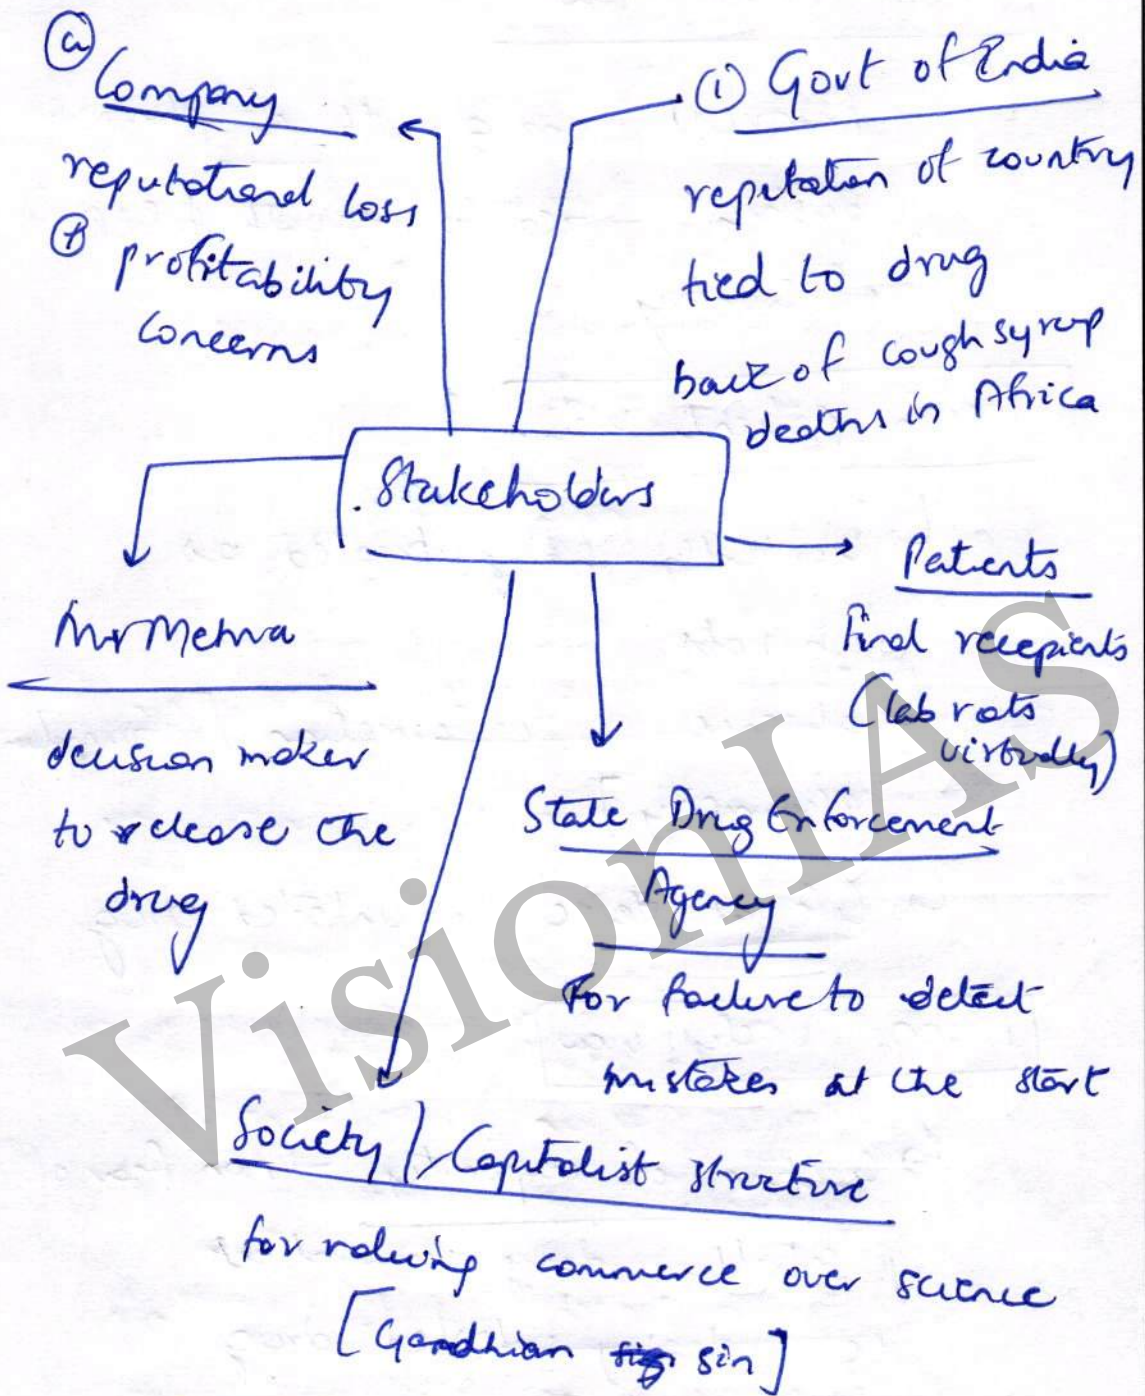 (a) Company
reputational loss
(P) profitability
concerns
(1) Govt of India
reputation of country
tied to drug
back of cough syrup
deaths in Africa
Stakeholders
Patients
Final recepients
(lab rats
virtually)
Mr Mehra
decision maker
to release the
drug
State Drug Enforcement
Agency
For failure to detect
mistakes at the start
Society / Capitalist structure
for valuing commerce over science
[Gandhian sin]
VisionIAS